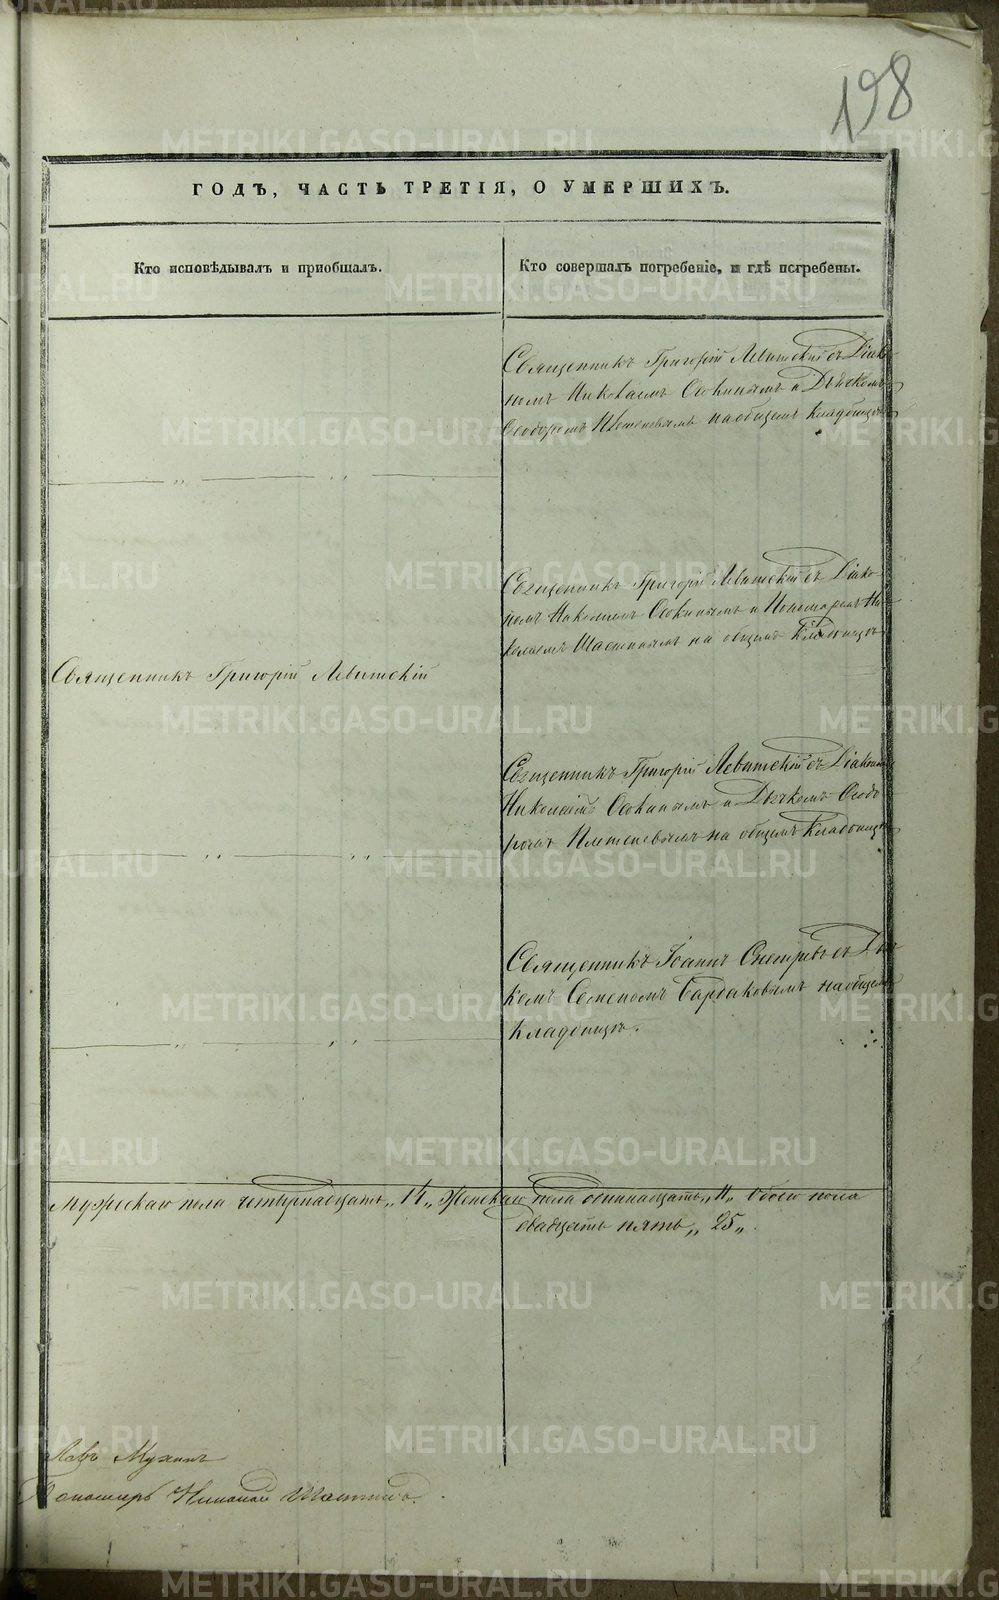 198
ГОДЪ, ЧАСТЬ ТРЕТІЯ, О УМЕРШИХЪ.
Кто исповѣдывалъ и пріобщалъ.
Кто совершалъ погребеніе, и гдѣ погребены.
Священникъ Григорій Левитскій съ Діако-
номъ Николаемъ Осокинымъ и Дьячкомъ
Ѳеодоромъ Плетеневымъ на общемъ кладбищѣ
Священникъ Григорій Левитскій съ Діако-
номъ Николаемъ Осокинымъ и Пономаремъ Ни-
колаемъ Шастинымъ на общемъ кладбищѣ
Священникъ Григорій Левитскій
Священникъ Григорій Левитскій съ Діакономъ
Николаемъ Осокинымъ и Дьячкомъ Ѳеодо-
ромъ Плетеневымъ на общемъ кладбищѣ
Священникъ Іоаннъ съ Дья-
комъ Семеномъ Бардаковымъ на общемъ
кладбищѣ.
Мужескаго пола четырнадцать „14„ Женскаго пола одинадцать „11„ Обоего пола
двадцать пять „25„.
Мухинъ
Пономарь Николай Шастинъ.
METRIKI.GASO-URAL.RU